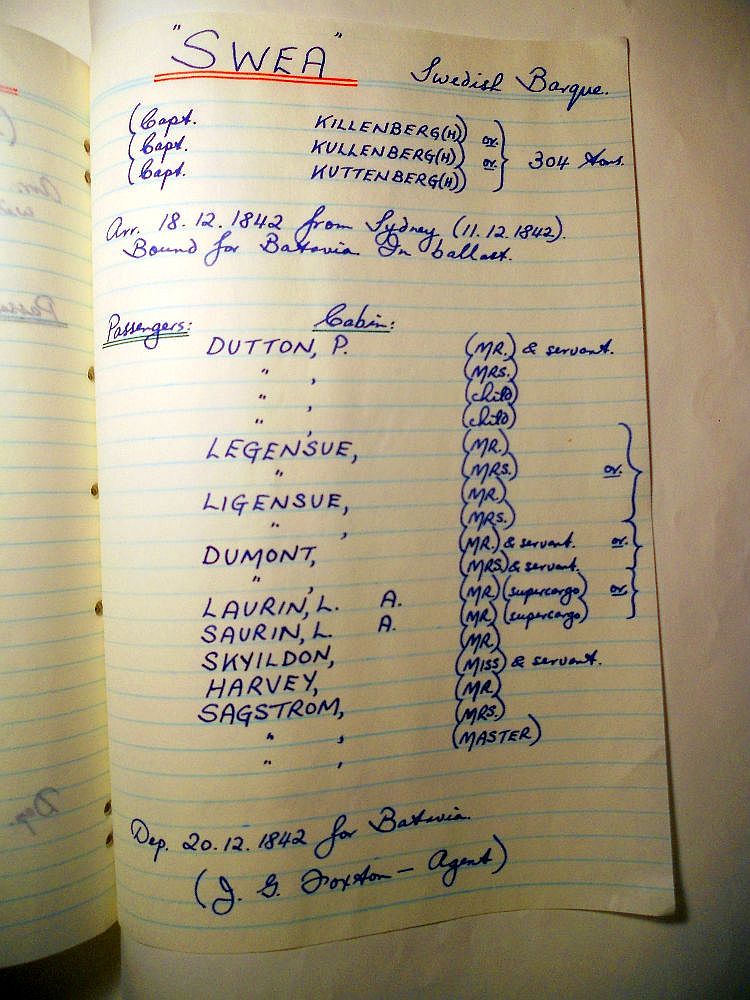 "SWEA" Swedish Barque.
(Capt. KILLENBERG(H)) or
(Capt. KULLENBERG(H)) or 304 tons.
(Capt. KUTTENBERG(H))
Arr. 18.12.1842 from Sydney (11.12.1842).
Bound for Batavia. In ballast.
Passengers: Cabin:
DUTTON, P. (MR.) & servant.
" , (MRS.)
" , (child)
" , (child)
LEGENSUE, (MR.)
" (MRS.) or
LIGENSUE, (MR.)
" , (MRS.)
DUMONT, (MR.) & servant. or
" , (MRS) & servant.
LAURIN, L. A. (MR) (supercargo) or
SAURIN, L. A. (MR) (supercargo)
SKYILDON, (MR.
HARVEY, (MISS) & servant.
SAGSTROM, (MR)
" , (MRS.)
" , (MASTER)
Dep. 20.12.1842 for Batavia.
(J. G. Foxton - Agent)
Dep.